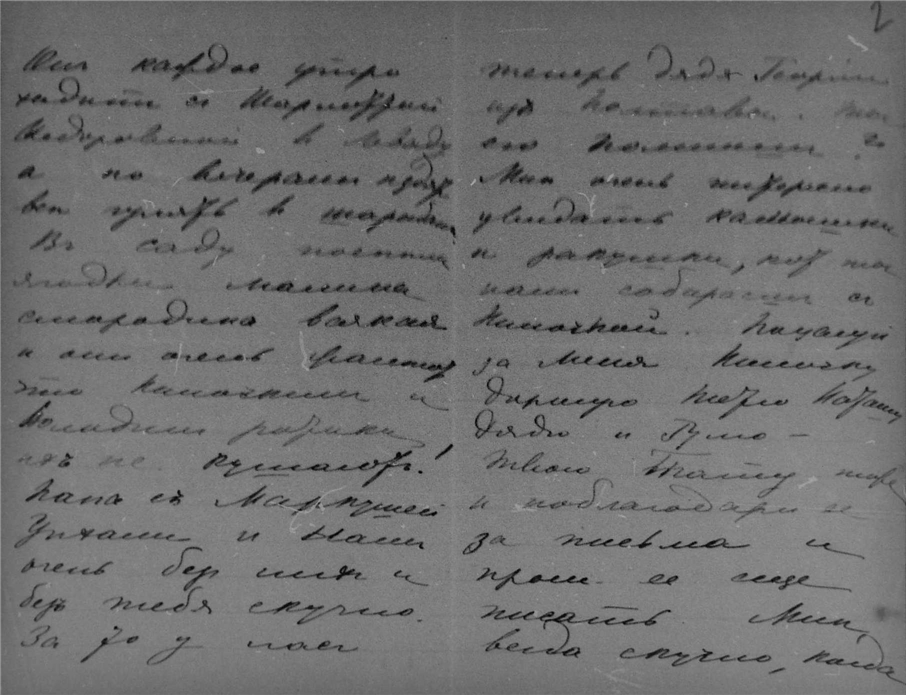 2
Они каждое утро
ходят съ Шарлоттой
Федоровной в леваду
а по вечерам
все гулять в
Въ саду поспели
ягодки малина
смородина всякая
и они очень
что Ниночкин и
Володин ротики
ихъ не кушают!
Папа съ Манкушей
Уехали и нам
очень без них и
без тебя скучно.
За то у нас
теперь дядя Георгий
из Полтавы. Ты
его помнишь?
Мне очень интересно
увидать камешки
и ракушки, кот ты
нам собираешь с
Ниночкой. Поцелуй
за меня Ниночку
дорогую тетю Наташу
дядю и Гулю —
твою Тату тоже
и поблагодари ее
за письма и
проси ее еще
писать Мне,
всегда скучно, когда